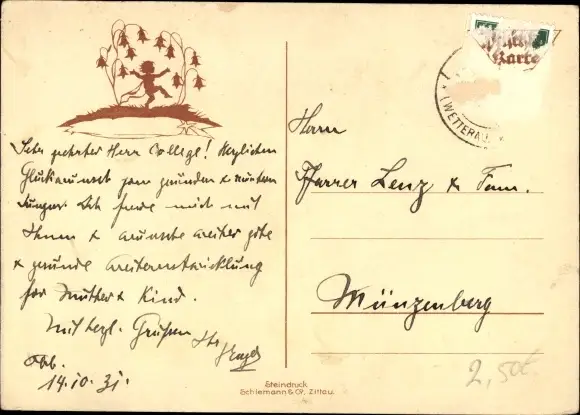 Sehr geehrter Herr College! Herzlichen
Glückwunsch zum gesunden & muntern
Jungen. Ich freue mich mit
Ihnen & wünsche weiter gute
& gesunde Weiterentwicklung
für Mutter & Kind.
Mit herzl. Grüßen Ihr
14.10.31.
Herrn
Pfarrer Lenz & Fam.
Münzenberg
Karte
(WETTERAU)
2,50
Steindruck
Schiemann & Co, Zittau.